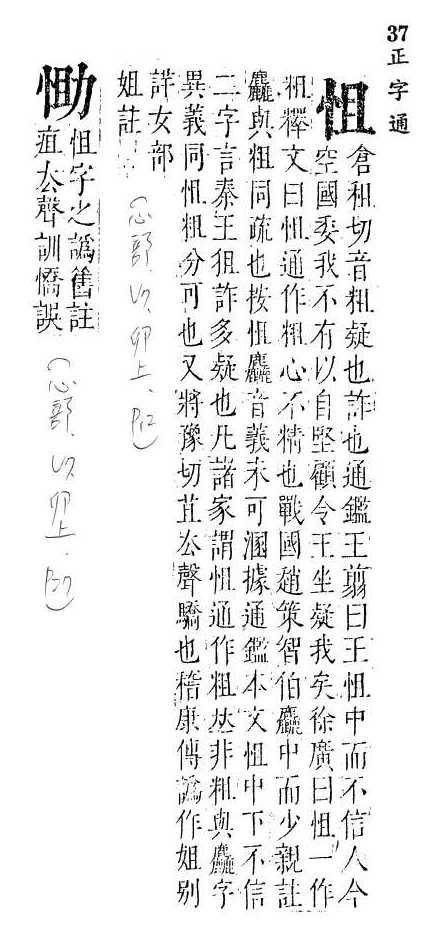 37正字通
怚
倉租切音粗疑也詐也通鑑王翦曰王怚中而不信人今
空國委我不有以自堅顧令王坐疑我矣徐廣曰怚一作
粗釋文曰怚通作粗心不精也戰國趙策智伯麤中而少親註
麤與粗同疏也按怚麤音義未可溷據通鑑本文怚中下不信
二字言秦王狙詐多疑也凡諸家謂怚通作粗𠀤非粗與麤字
異義同怚粗分可也又將豫切苴去聲驕也嵇康傳譌作姐別
詳女部
姐註
(心部、
卯上、
P12)
㔧
怚字之譌舊註
疽去聲訓憍誤
(心部、
卯上、